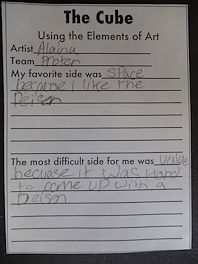 The Cube
Using the Elements of Art
Artist Alaina
Team Proten
My favorite side was Space
because I like the
Deisen
The most difficult side for me was value
because it was Hard
to come up with a
Deisn